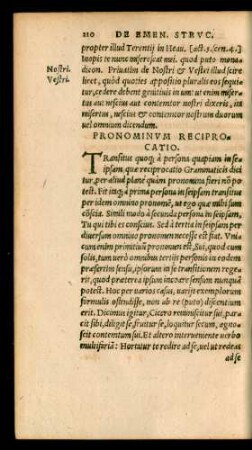 110 DE EMEN. STRVC.
propter illud Terentij in Heau. [act.5.scen.4.]
Inopis te nunc miserescat mei. quod puto mona-
dicon. Priuatim de Nostri & Vestri illud scire
Nostri.
liret, quòd quoties appositio pluralis eos sequi
Vestri.
tur, cedere debent genitiuis in um: ut enim mise
ratus aut nescius aut contemtor nostri dixeris, ita
misertus, nescius & contemtor nostrum duorum
uel omnium dicendum.
PRONOMINVM RECIPRO-
CATIO.
Transitus quoq; à persona quapiam in se
ipsam quæ reciprocatio Grammaticis dici
tur, per aliud planè quàm pronomina fieri nõ po
test. Fit itaq; à prima persona in seipsam transitus
per idem omnino pronomẽ, ut ego quæ mihi sum
cõscia. Simili modo à secunda persona in seipsam,
Tu qui tibi es conscius. Sed à tertia in seipsam per
diuersam omnino pronomen necesse est fiat. Veni
am enim primitiuũ pronomen est, Sui, quod cum
solis, tum uerò omnibus tertijs personis in eodem
præsertim sensu, ipsorum in se transitionem rege-
rit, quod præterea ipsum incedere sensum nunquã
potest. Hoc per uarios casus, uarijs exemplorum
formulis ostendisse, non ab re (puto) discentium
erit. Dicimus igitur, Cicero reminiscitur sui, pa-
cit sibi, diligit se, fruitur se, loquitur secum, agno-
scit contemtum sui. Et altero interueniente uerbo
multifariã: Hortatur te redire ad se, uel ut redeas
ad se